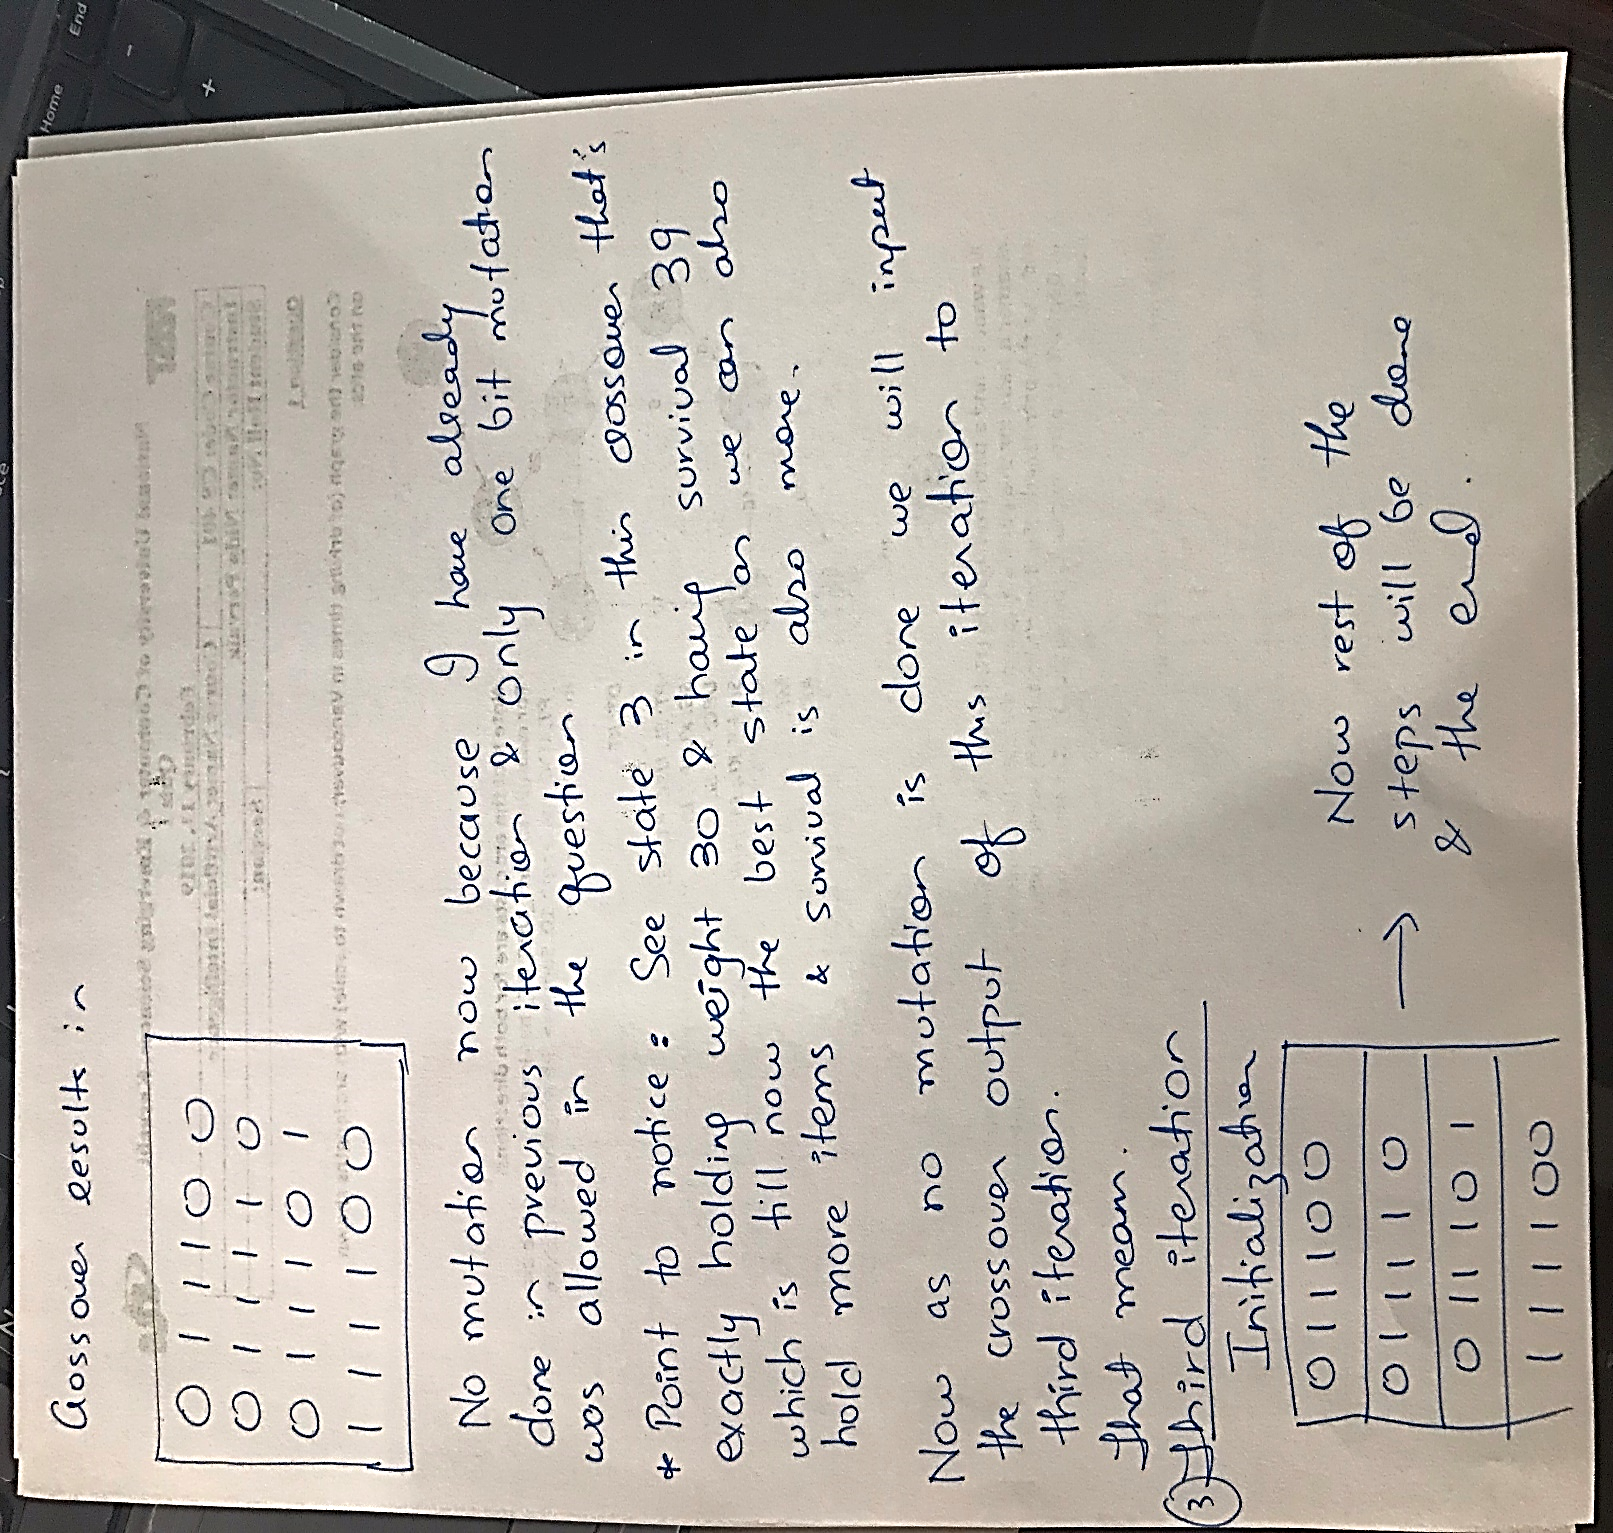 Crossover results in
0 1 1 1 0 0
0 1 1 1 1 0
0 1 1 1 0 1
1 1 1 1 0 0
No mutation now because I have already
done in previous iteration & only one bit mutation
was allowed in the question
* Point to notice : See state 3 in this crossover that's
exactly holding weight 30 & having survival 39
which is till now the best state as we can also
hold more items & survival is also more.
Now as no mutation is done we will input
the crossover output of this iteration to
third iteration.
That mean.
3 Third iteration
Initialization
0 1 1 1 0 0
0 1 1 1 1 0
0 1 1 1 0 1
1 1 1 1 0 0
→ Now rest of the
steps will be done
& the end.
Home
End
-
+